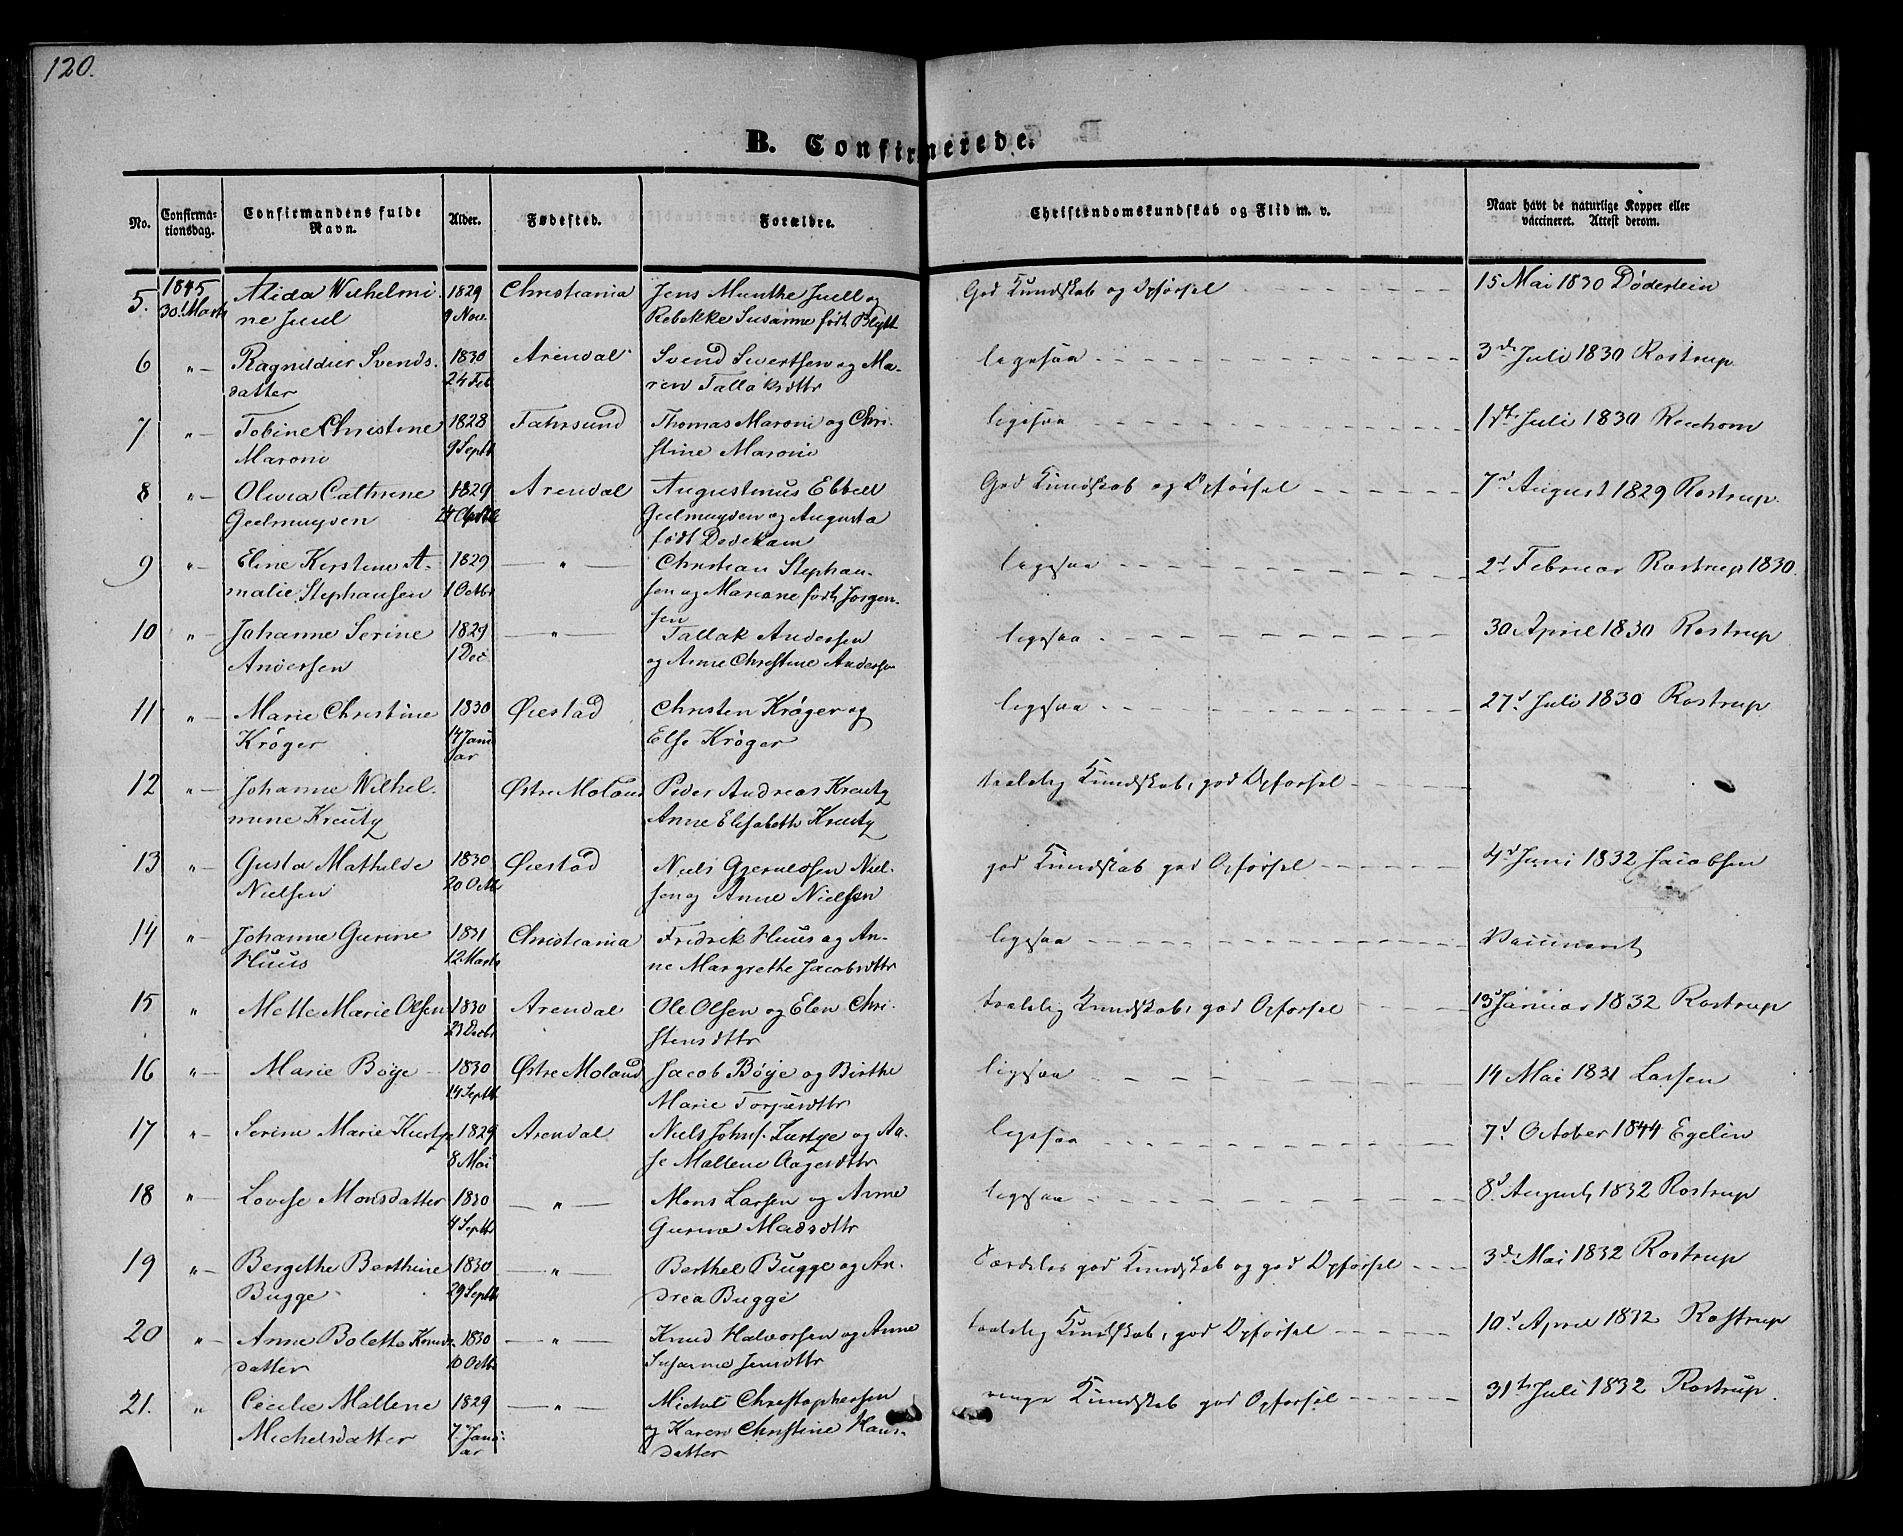 120.
B. Confirmerede.
No. Confirma-tionsdag. Confirmandens fulde Navn. Alder. Fødested. Forældre. Christendomskundskab og Flid m. v. Naar havt de naturlige Kopper eller vaccineret. Attest derom.
5. 1845 30 Marts Alida Wilhelmi- 1829 Christiania Jens Munthe Juell og God Kundskab og Opførsel 15 Mai 1830 Døderlein
ne Juul 9 Nov. Rebekke Susanne født Blytt
6 „ Ragnidder Svends- 1830 Arendal Svend Sivertsen og Ma- ligesaa 3d Juli 1830 Rostrup
datter 24 Feb ren Tallaksdttr
7 „ Tobine Christine 1828 Fahrsund Thomas Maroni og Chri- ligesaa Juli 1830
Maroni 9 Septb stine Maroni
8 „ Olivia Cathrine 1829 Arendal Augustinus Ebbell God Kundskab og Opførsel 7d August 1829 Rostrup
Geelmuyden Geelmuyden og Augusta
født Dedekam
9 „ Eline Kirstine A- 1829 „ Christian Stephan- ligesaa 2d Februar Rostrup 1830.
malie Stephansen 1 Octbr sen og Mariane født Jørgen-
sen
10 „ Johanne Serine 1829 „ Tallak Andersen ligesaa 30 April 1830 Rostrup
Andersen 1 Dec. og Anne Christine Andersen
11 „ Marie Christine 1830 Øiestad Christen Krøger og ligesaa 27d Juli 1830 Rostrup
Krøger 14 Janu Else Krøger
ar
12 „ Johanne Wilhel- Østre Moland Peder Andreas Kreutz taalelig Kundskab, god Opførsel
mine Kreutz Anne Elisabeth Kreutz
13 „ Gusta Mathilde 1830 Øiestad Niels Gjeruldsen Niel- god Kundskab god Opførsel 4d Juni 1832 Jacobsen
Nielsen 20 Octb sen og Anne Nielsen
14 „ Johanne Gurine 1831 Christiania Fredrik Huus og An- ligesaa Vaccineret
Huus 12 Marts ne Margrethe Jacobsdttr
15 „ Mette Marie Olsen 1830 Arendal Ole Olsen og Elen Chri- taalelig Kundskab, god Opførsel 13d Januar 1832 Rostrup
23 Decbr stensdttr
16 „ Marie Bøye 1830 Østre Moland Jacob Bøye og Birthe ligesaa 14 Mai 1831 Larsen
14 Septb Marie Torjusdttr
17 „ Serine Marie 1829 Arendal Niels Johns. og Aa- ligesaa 7d October 1844 Egelin
8 Mai se Mallene Aagesdttr
18 „ Lovise Monsdatter 1830 „ Mons Larsen og Anne ligesaa 8d August 1832 Rostrup
4 Septb Gurine Madsdttr
19 „ Bergithe Berthine 1830 „ Berthel Bugge og An- Særdeles god Kundskab og god Opførsel 3d Mai 1832 Rostrup
Bugge 29 Septb drea Bugge
20 „ Anne Bolette Knuds- 1830 „ Knud Halvorsen og Anne taalelig Kundskab, god Opførsel 10d April 1832 Rostrup
datter 10 Octb Susanne Jensdttr
21. „ Cecilie Mallene 1829 „ Michel Christophersen ringe Kundskab god Opførsel 31te Juli 1832 Rostrup.
Michelsdatter 7 Janu- og Karen Christine Hans-
ar datter